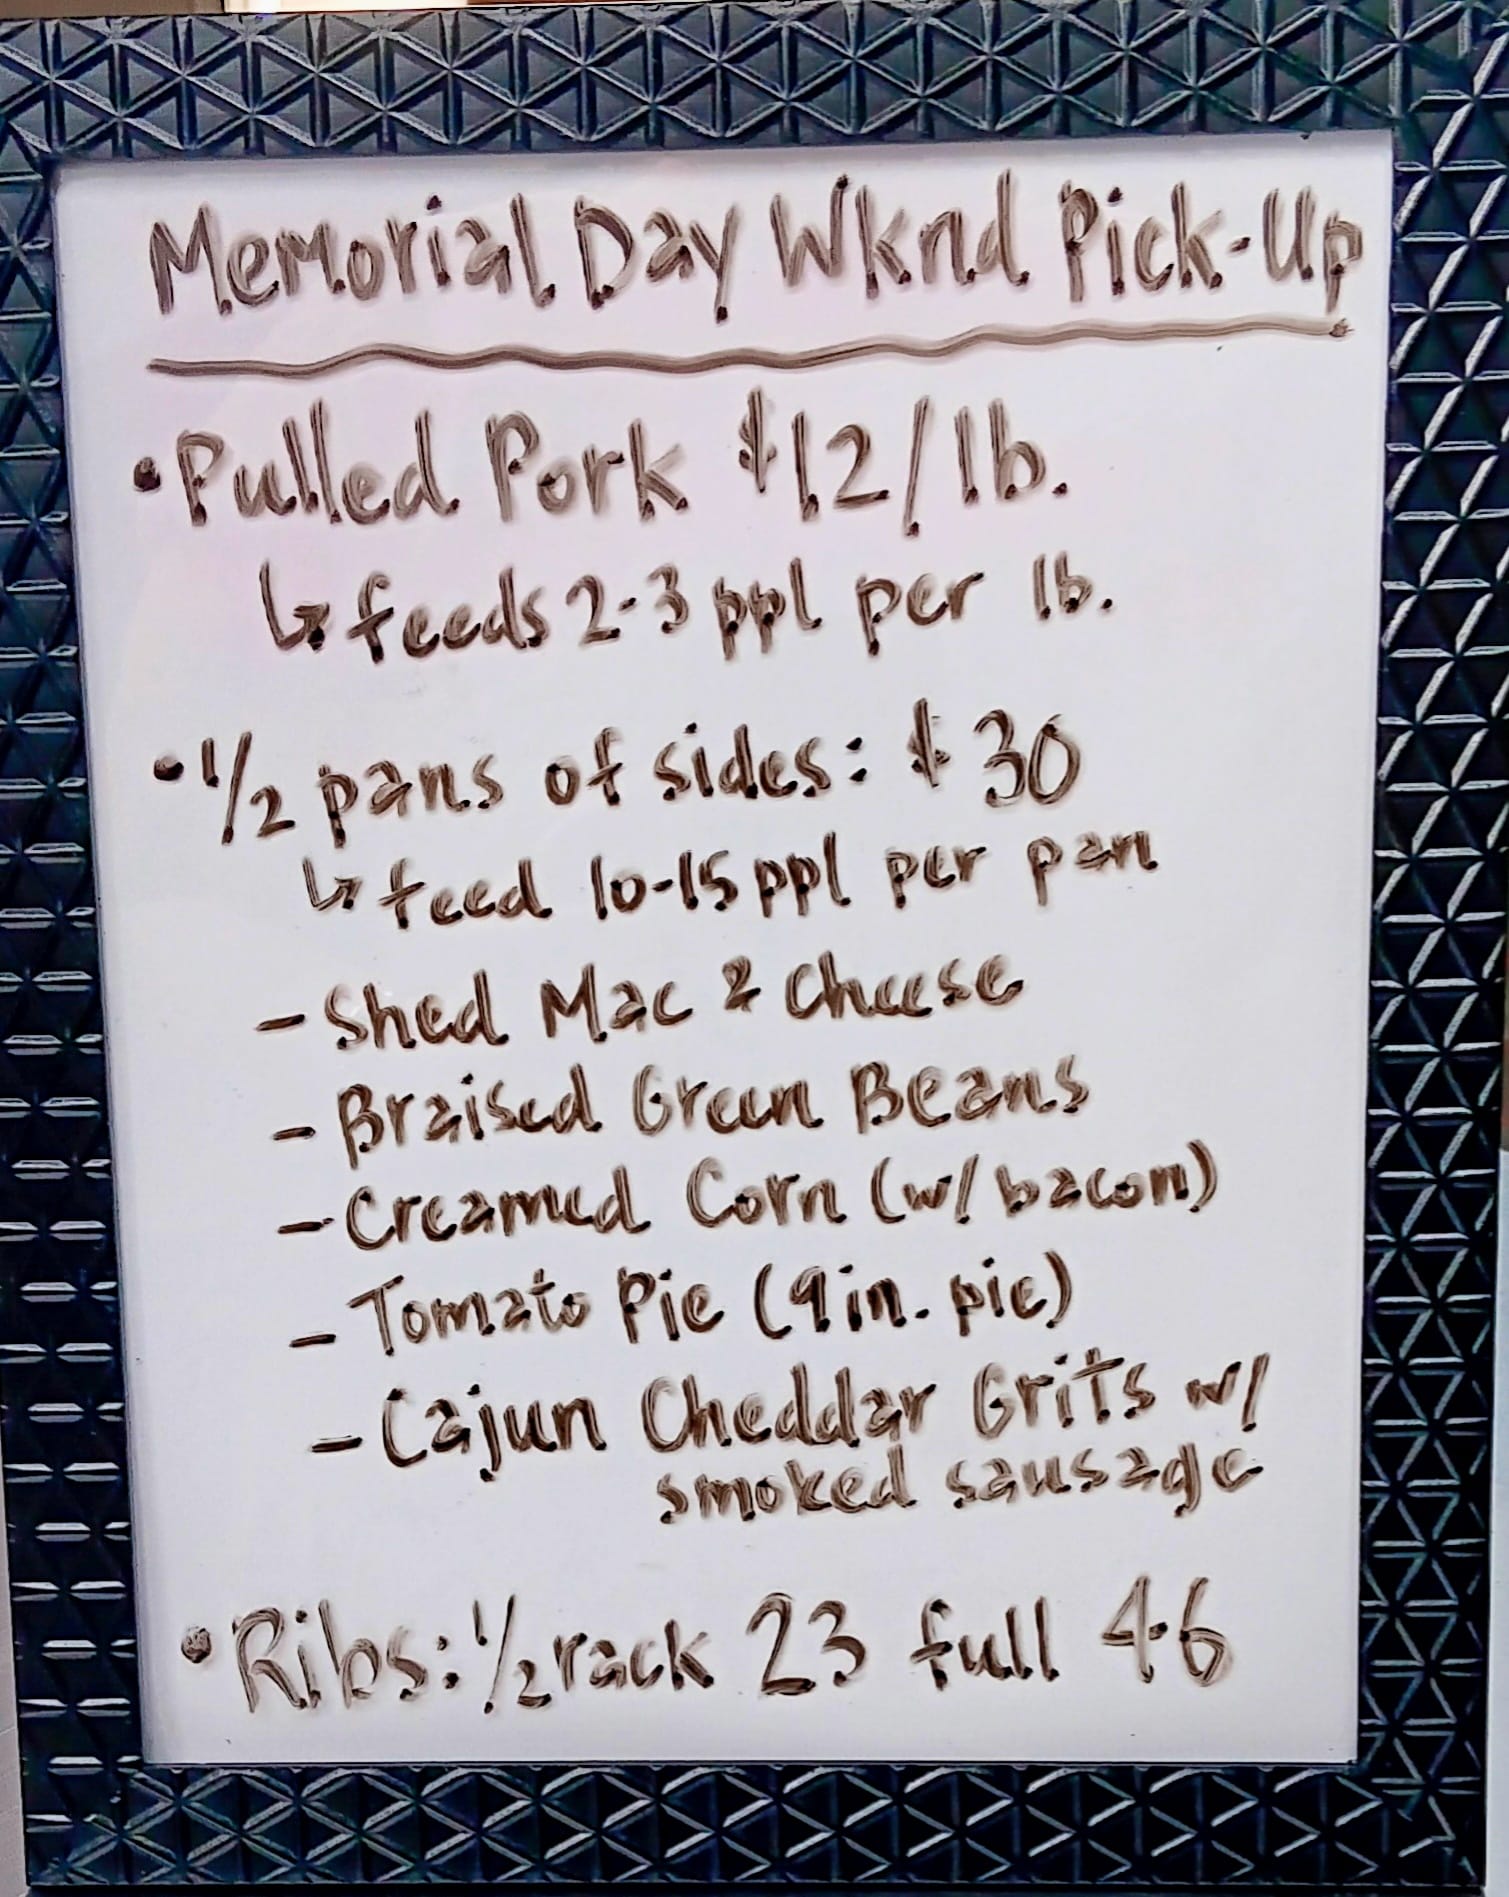 Memorial Day Wknd Pick-Up
• Pulled Pork $12/lb.
↳ feeds 2-3 ppl per lb.
• 1/2 pans of sides: $30
↳ feed 10-15 ppl per pan
- Shed Mac & Cheese
- Braised Green Beans
- Creamed Corn (w/ bacon)
- Tomato Pie (9in. pie)
- Cajun Cheddar Grits w/
smoked sausage
• Ribs: 1/2 rack 23 full 46